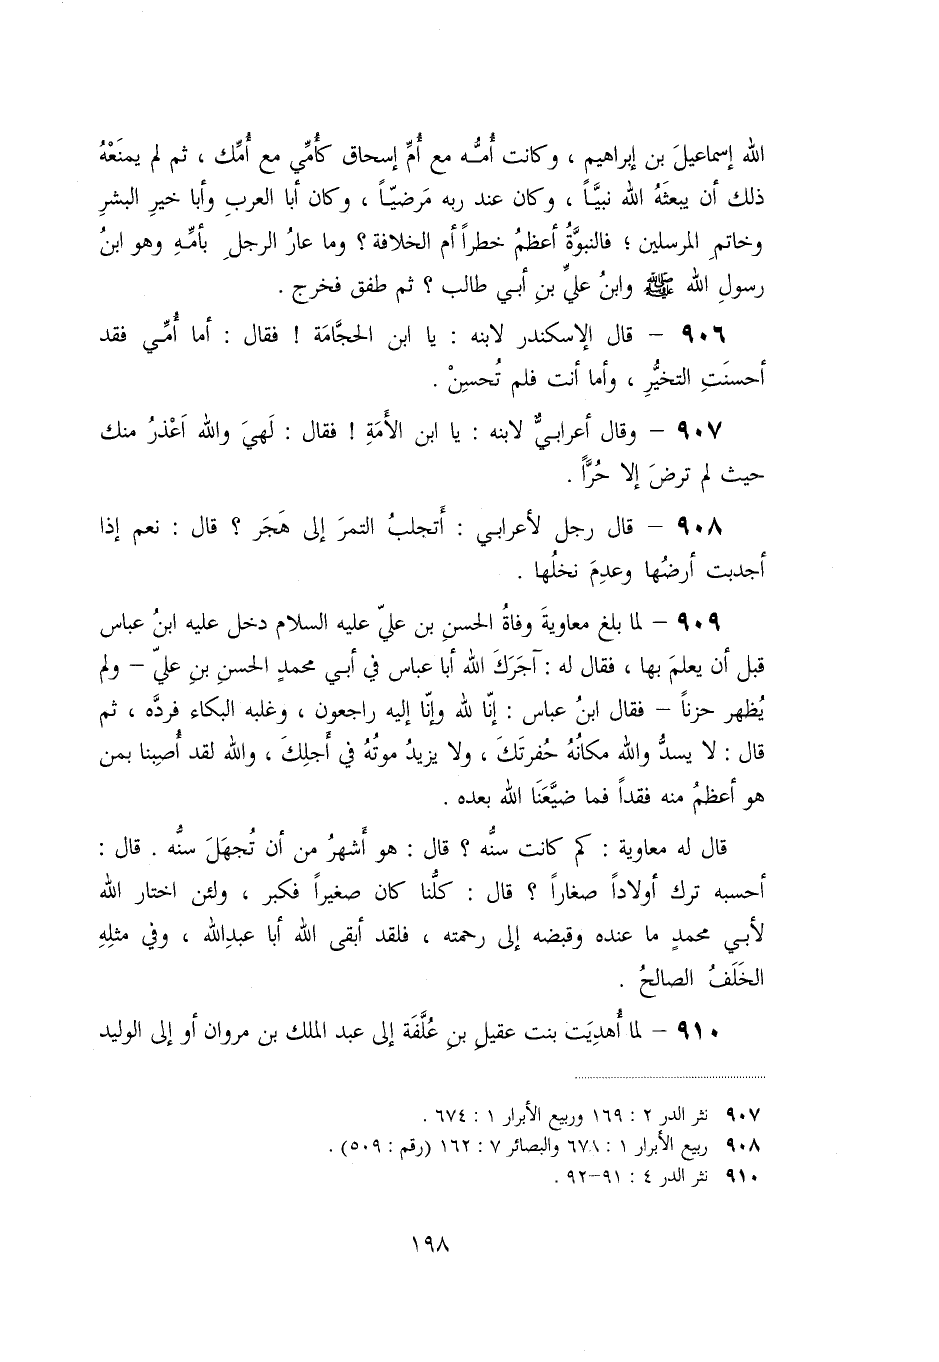 الله إسماعيلَ بن إبراهيم ، وكانت أُمُّه مع أُمِّ إسحاق كأُمِّي مع أُمِّك ، ثم لم يمنَعْهُ
ذلك أن يبعثَهُ الله نبيَّاً ، وكان عند ربه مَرضيّاً ، وكان أبا العربِ وأبا خيرِ البشرِ
وخاتمِ المرسلين ؛ فالنبوَّةُ أعظمُ خطراً أم الخلافة ؟ وما عارُ الرجلِ بأمِّهِ وهو ابنُ
رسولِ الله ﷺ وابنُ عليٍّ بنِ أبي طالب ؟ ثم طفق فخرج .
٩٠٦ – قال الإسكندر لابنه : يا ابن الحجَّامَة ! فقال : أما أُمِّي فقد
أحسنَتِ التخيُّرِ ، وأما أنت فلم تُحسِنْ .
٩٠٧ – وقال أعرابيٌّ لابنه : يا ابن الأَمَةِ ! فقال : لَهيَ والله اَعْذرُ منك
حيث لم ترضَ إلا حُرَّاً .
٩٠٨ – قال رجل لأعرابي : أَتجلبُ التمرَ إلى هَجَر ؟ قال : نعم إذا
أجدبت أرضُها وعدِمَ نخلُها .
٩٠٩ – لما بلغ معاويةَ وفاةُ الحسنِ بن عليّ عليه السلام دخل عليه ابنُ عباس
قبل أن يعلمَ بها ، فقال له : آجَرَكَ الله أبا عباس في أبي محمدٍ الحسنِ بنِ عليّ – ولم
يُظهر حزناً – فقال ابنُ عباس : إنّا لله وإنّا إليه راجعون ، وغلبه البكاء فردَّه ، ثم
قال : لا يسدُّ والله مكانُهُ حُفرتَكَ ، ولا يزيدُ موتُهُ في أَجلِكَ ، والله لقد أُصِبنا بمن
هو أعظمُ منه فقداً فما ضيَّعَنَا الله بعده .
قال له معاوية : كم كانت سنُّه ؟ قال : هو أَشهرُ من أن تُجهَلَ سنُّه . قال :
أحسبه ترك أولاداً صغاراً ؟ قال : كلُّنا كان صغيراً فكبر ، ولئن اختار الله
لأبي محمدٍ ما عنده وقبضه إلى رحمته ، فلقد أبقى الله أبا عبدالله ، وفي مثلِهِ
الخَلَفُ الصالحُ .
٩١٠ – لما أُهدِيَت بنت عقيلِ بنِ عُلَّفَة إلى عبد الملك بن مروان أو إلى الوليد
٩٠٧ نثر الدر ٢ : ١٦٩ وربيع الأبرار ١ : ٦٧٤ .
٩٠٨ ربيع الأبرار ١ : ٦٧١ والبصائر ٧ : ١٦٢ (رقم : ٥٠٩) .
٩١٠ نثر الدر ٤ : ٩١–٩٢ .
١٩٨